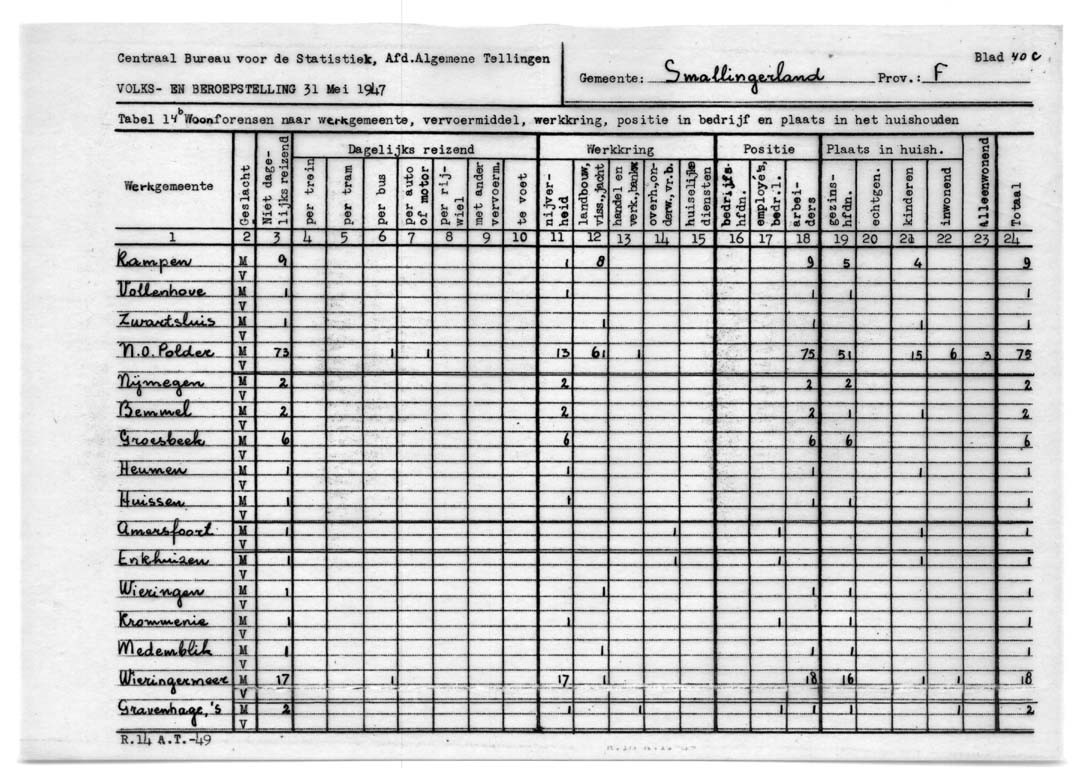 Centraal Bureau voor de Statistiek, Afd.Algemene Tellingen
Blad 40 c
Gemeente: Smallingerland Prov.: F
VOLKS- EN BEROEPSTELLING 31 Mei 1947
Tabel 14b Woonforensen naar werkgemeente, vervoermiddel, werkkring, positie in bedrijf en plaats in het huishouden
Werkgemeente Geslacht Niet dage- lijks reizend Dagelijks reizend per trein per tram per bus per auto of motor per rij- wiel met ander vervoerm. te voet Werkkring nijver- heid landbouw, viss.,jacht handel en verk.,bankw overh.,on- derw.,vr.b. huiselijke diensten Positie bedrijfs- hfdn. employé's, bedr.l. arbei- ders Plaats in huish. gezins- hfdn. echtgen. kinderen inwonend Alleenwonend Totaal
1 2 3 4 5 6 7 8 9 10 11 12 13 14 15 16 17 18 19 20 21 22 23 24
Kampen M 9 1 8 9 5 4 9
V
Vollenhove M 1 1 1 1 1
V
Zwartsluis M 1 1 1 1 1
V
N.O. Polder M 73 1 1 13 61 1 75 51 15 6 3 75
V
Nijmegen M 2 2 2 2 2
V
Bemmel M 2 2 2 1 1 2
V
Groesbeek M 6 6 6 6 6
V
Heumen M 1 1 1 1 1
V
Huissen M 1 1 1 1 1
V
Amersfoort M 1 1 1 1 1
V
Enkhuizen M 1 1 1 1 1
V
Wieringen M 1 1 1 1 1
V
Krommenie M 1 1 1 1 1
V
Medemblik M 1 1 1 1 1
V
Wieringermeer M 17 1 17 1 18 16 1 1 18
V
Gravenhage,'s M 2 1 1 1 1 1 1 2
V
R.14 A.T.-49